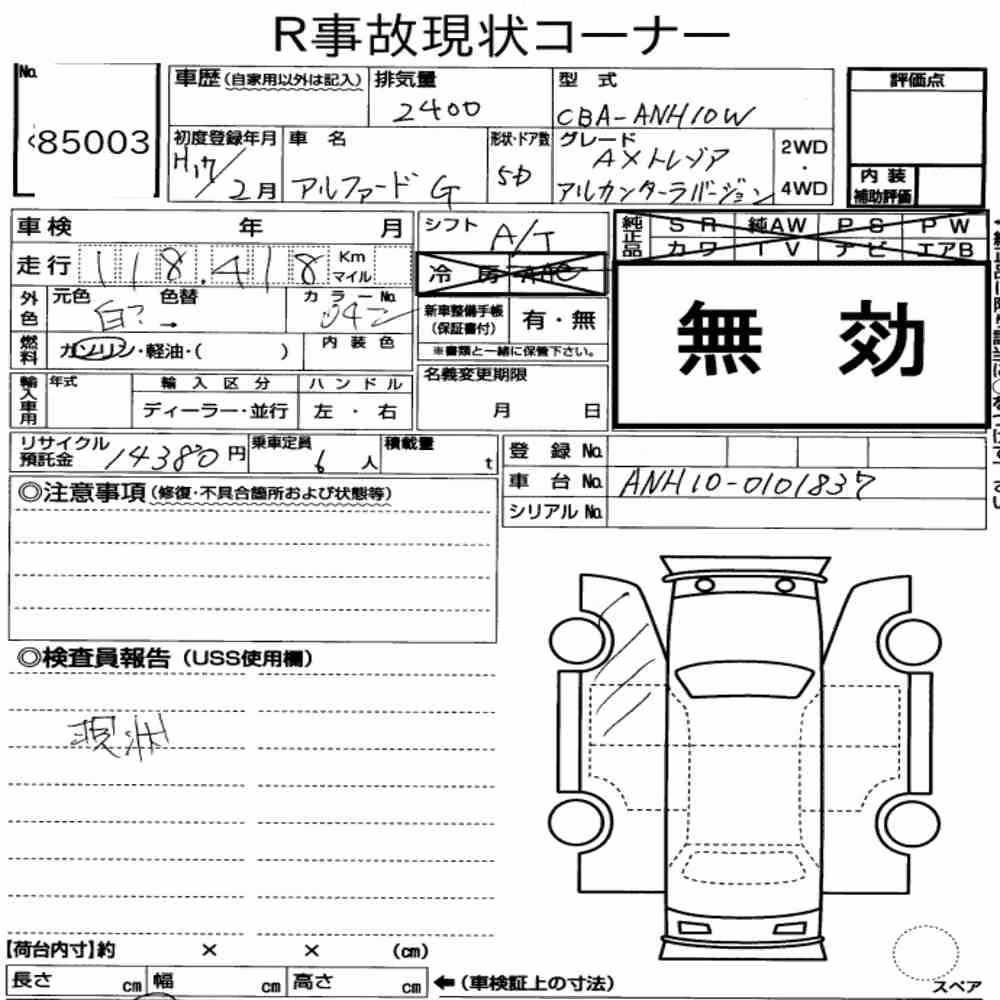 R事故現状コーナー
No.
85003
車歴(自家用以外は記入)
排気量
2400
型 式
CBA-ANH10W
評価点
初度登録年月
H17/2月
車 名
アルファード G
形状・ドア数
5D
グレード
AXトレゾア
アルカンターラバージョン
2WD
・
4WD
内 装
補助評価
車検 年 月
シフト
A/T
純正品
SR 純AW PS PW
カワ TV ナビ エアB
走行 118,418 Km
マイル
冷 房 AAC
無 効
外色
元色
白?
色替
カラーNo.
042
新車整備手帳
(保証書付)
有・無
※書類と一緒に保管下さい。
燃料
ガソリン・軽油・( )
内 装 色
輸入車用
年式
輸 入 区 分
ディーラー・並行
ハ ン ド ル
左 ・ 右
名義変更期限
月 日
リサイクル
預託金 14380円
乗車定員
6人
積載量
t
登 録 No.
車 台 No. ANH10-0101837
シリアル No.
◎注意事項(修復・不具合箇所および状態等)
◎検査員報告(USS使用欄)
現状
【荷台内寸】約 × × (cm)
長さ cm 幅 cm 高さ cm
←(車検証上の寸法)
スペア